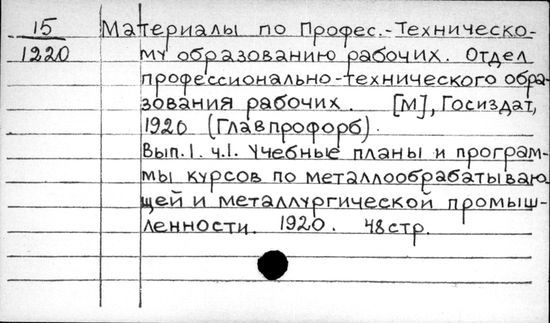 15 Материалы по Профес.-Техническо-
1220 му образованию рабочих. Отдел
профессионально-технического обра-
зования рабочих. [М], Госиздат,
1920 (Главпрофорб).
Вып. I. ч. I. Учебные планы и програм-
мы курсов по металлообрабатываю
щей и металлургической промыш-
ленности. 1920. 48 стр.